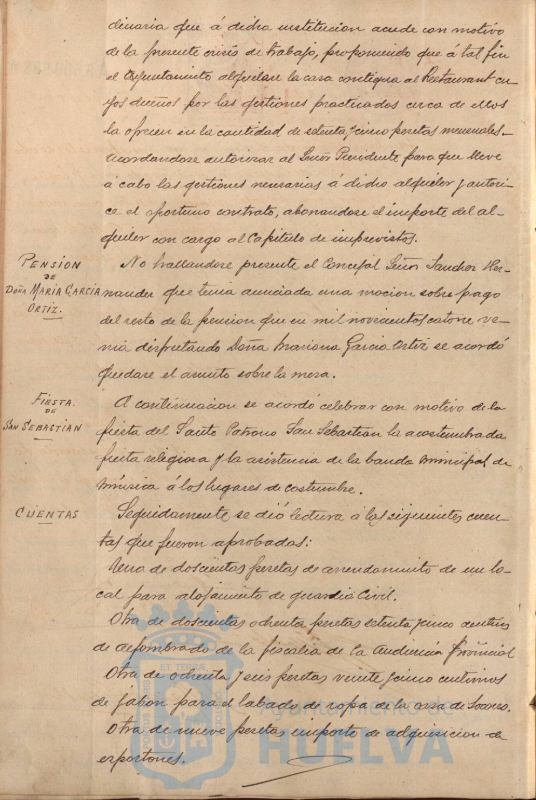 dinaria que á dicha institucion acude con motivo
de la presente crisis de trabajo, proponiendo que á tal fin
el Ayuntamiento alquilare la casa contigua al Restaurant cu-
yos dueños por las gestiones practicadas cerca de ellos
la ofrecen en la cantidad de setenta y cinco pesetas mensuales.
acordandose autorizar al Señor Presidente para que lleve
á cabo las gestiones necesarias á dicho alquiler y autori-
ce el oportuno contrato, abonandose el importe del al-
quiler con cargo al Capitulo de imprevistos.
PENSION
DE
DOÑA MARIA GARCIA
ORTIZ.
No hallandose presente el Concejal Señor Sanchez Her-
nandez que tenia anunciada una mocion sobre pago
del resto de la pension que en mil novecientos catorce ve-
nia disfrutando Doña Mariana Garcia Ortiz se acordó
quedase el asunto sobre la mesa.
FIESTA
DE
SAN SEBASTIAN
A continuacion se acordó celebrar con motivo de la
fiesta del Santo Patrono San Sebastian la acostumbrada
fiesta religiosa y la asistencia de la banda municipal de
música á los lugares de costumbre.
CUENTAS
Seguidamente se dió lectura á las siguientes cuen-
tas que fueron aprobadas:
Una de doscientas pesetas de arrendamiento de un lo-
cal para alojamiento de guardia Civil.
Otra de doscientas ochenta pesetas setenta y cinco centimos
de alfombrado de la fiscalia de la Audiencia Provincial
Otra de ochenta y seis pesetas veinte y cinco centimos
de jabon para el labado de ropa de la casa de Socorro.
Otra de nueve pesetas importe de adquisicion de
esportones.
Ayuntamiento de
HUELVA